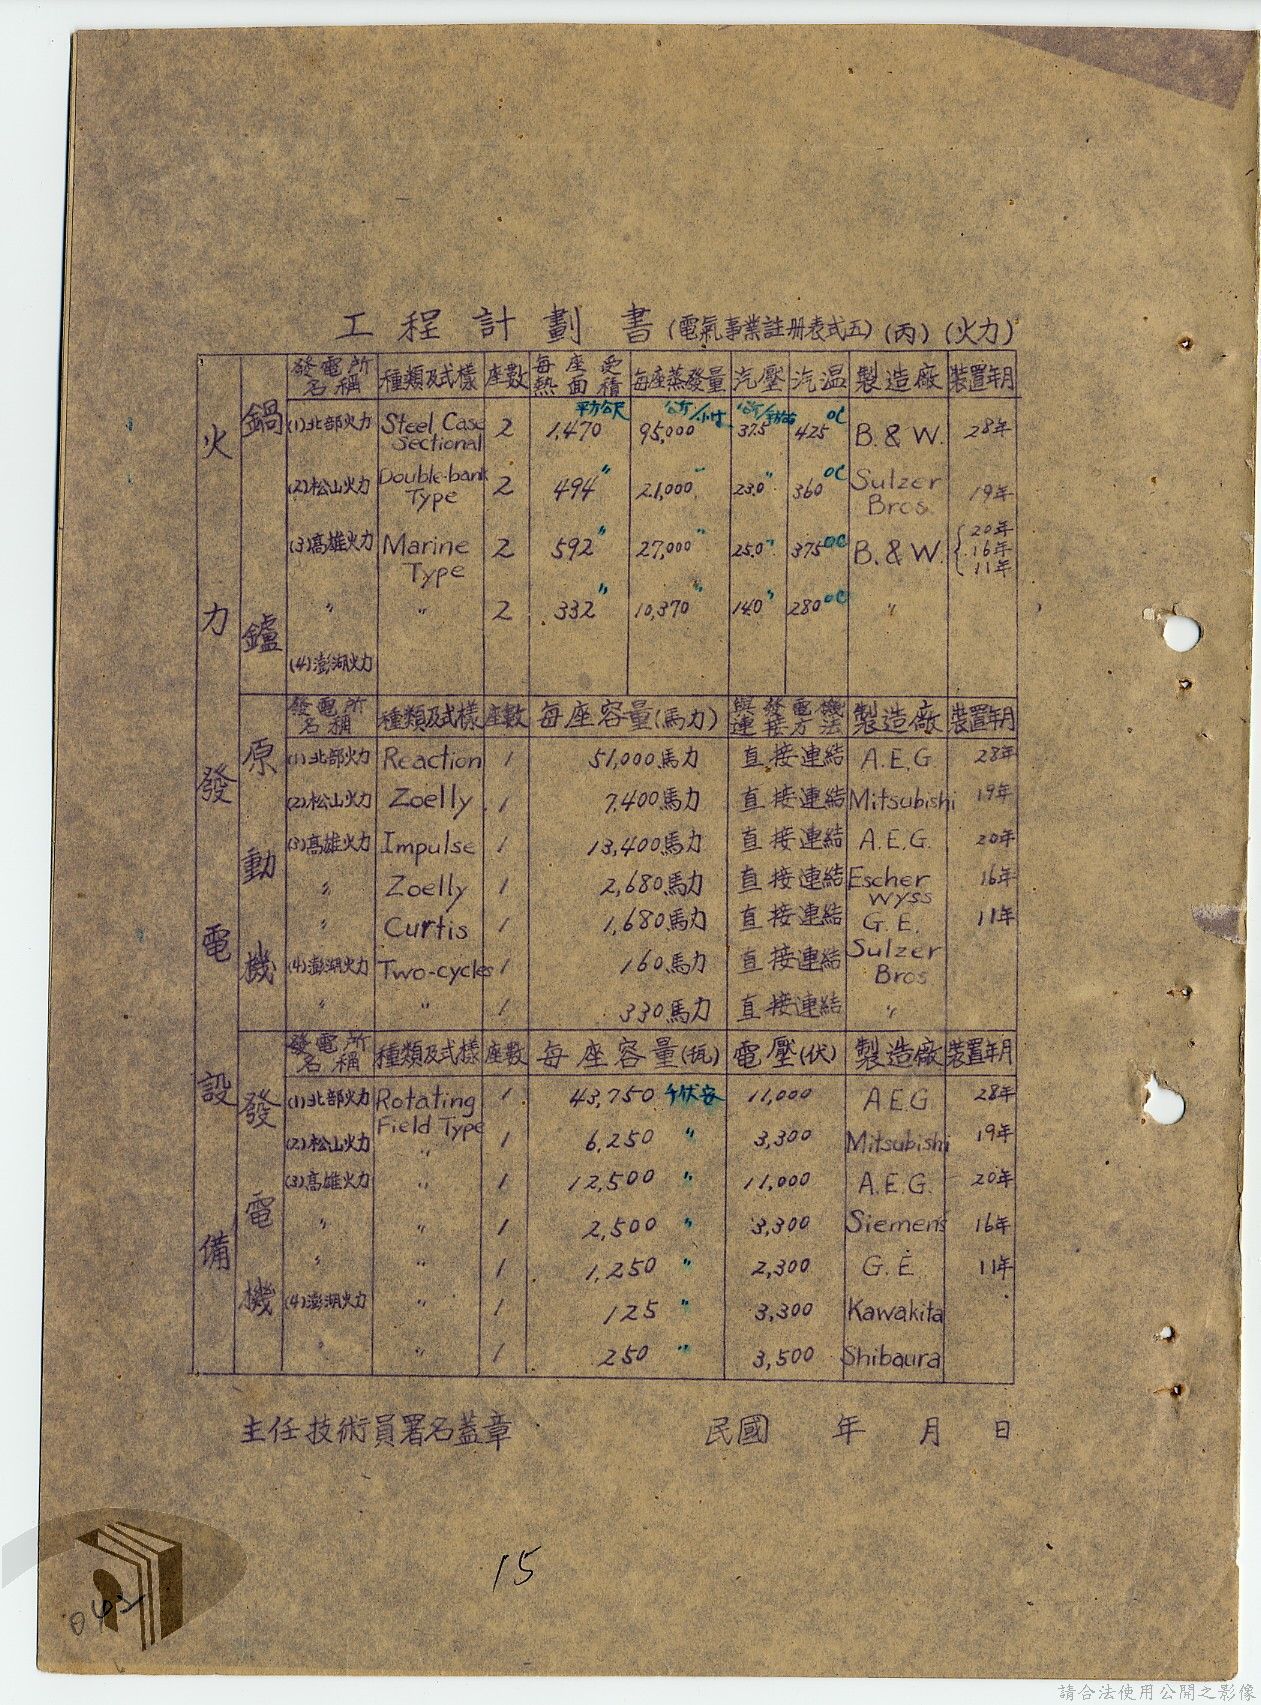 工程計劃書(電氣事業註册表式五)(丙)(火力)
火力發電設備
鍋鑪
發電所名稱 種類及式樣 座數 每座受熱面積 每座蒸發量 汽壓 汽温 製造廠 裝置年月
平方公尺 公斤/小时 °C
(1)北部火力 Steel Case Sectional 2 1,470 95,000 37.5 425 B. & W. 28年
(2)松山火力 Double-bank Type 2 494 〃 21,000 〃 23.0 〃 360 °C Sulzer Bros. 19年
(3)高雄火力 Marine Type 2 592 〃 27,000 〃 25.0 〃 375 °C B. & W. 20年 16年 11年
〃 〃 2 332 〃 10,370 〃 14.0 〃 280 °C 〃
(4)澎湖火力
原動機
發電所名稱 種類及式樣 座數 每座容量(馬力) 與發電機連接方法 製造廠 裝置年月
(1)北部火力 Reaction 1 51,000馬力 直接連結 A.E.G 28年
(2)松山火力 Zoelly 1 7,400馬力 直接連結 Mitsubishi 19年
(3)高雄火力 Impulse 1 13,400馬力 直接連結 A.E.G. 20年
〃 Zoelly 1 2,680馬力 直接連結 Escher Wyss 16年
〃 Curtis 1 1,680馬力 直接連結 G.E. 11年
(4)澎湖火力 Two-cycles 1 160馬力 直接連結 Sulzer Bros
〃 〃 1 330馬力 直接連結 〃
發電機
發電所名稱 種類及式樣 座數 每座容量(瓩) 電壓(伏) 製造廠 裝置年月
(1)北部火力 Rotating Field Type 1 43,750 千伏安 11,000 A.E.G 28年
(2)松山火力 〃 1 6,250 〃 3,300 Mitsubishi 19年
(3)高雄火力 〃 1 12,500 〃 11,000 A.E.G. 20年
〃 〃 1 2,500 〃 3,300 Siemens 16年
〃 〃 1 1,250 〃 2,300 G.E. 11年
(4)澎湖火力 〃 1 125 〃 3,300 Kawakita
〃 〃 1 250 〃 3,500 Shibaura
主任技術員署名蓋章 民國 年 月 日
15
042
請合法使用公開之影像